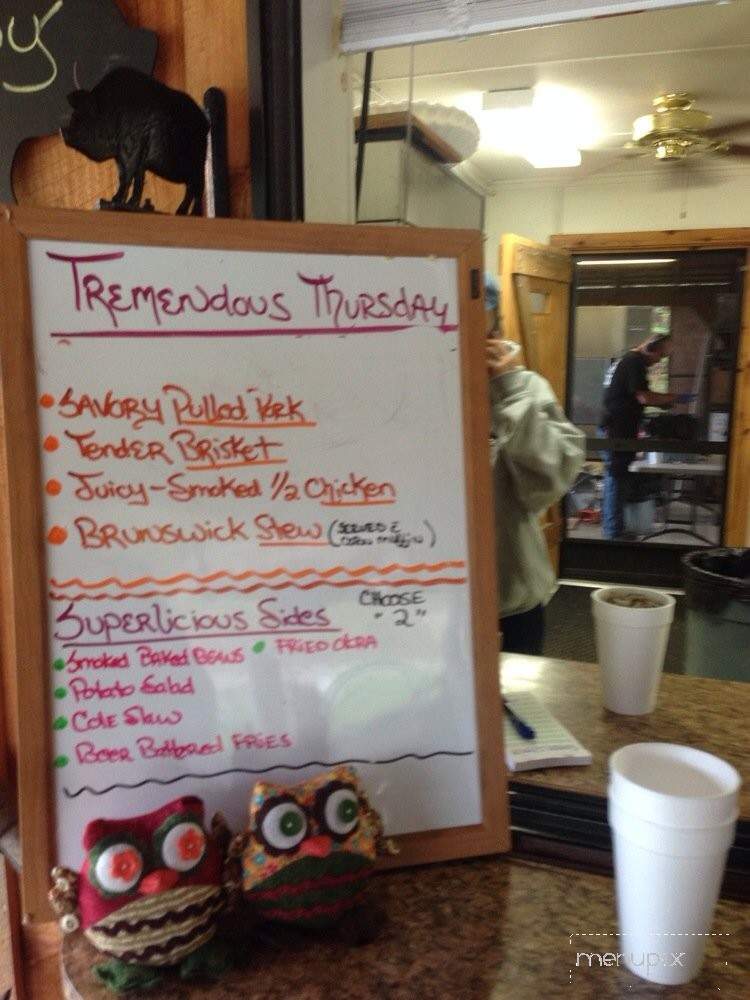 y
Tremendous Thursday
Savory Pulled Pork
Tender Brisket
Juicy-Smoked 1/2 Chicken
Brunswick Stew (Served
Superlicious Sides
Choose
"2"
Smoked Baked Beans
Fried Okra
Potato Salad
Cole Slaw
Beer Battered Fries
menupix